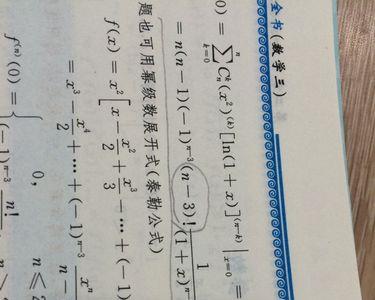 全书(数学三)
0) = \sum_{k=0}^{n} C_n^k (x^2)^{(k)} [\ln(1+x)]^{(n-k)} |_{x=0} =
= n(n-1)(-1)^{n-3}(n-3)! \frac{1}{(1+x)^n
题也可用幂级数展开式(泰勒公式)
f(x) = x^2 [x - \frac{x^2}{2} + \frac{x^3}{3} - … + (-1)
= x^3 - \frac{x^4}{2} + … + (-1)^{n-3} \frac{x^n}{n-
f^{(n)}(0) = { 0, n ≤
(-1)^{n-3} n!